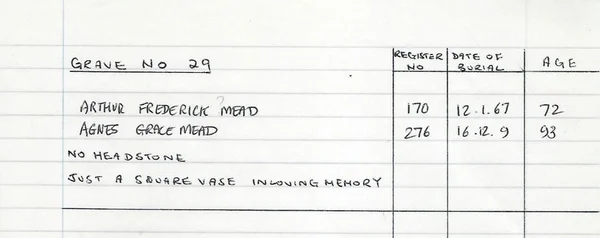 GRAVE NO 29 REGISTER NO DATE OF BURIAL AGE
ARTHUR FREDERICK MEAD 170 12.1.67 72
AGNES GRACE MEAD 276 16.12.9 93
NO HEADSTONE
JUST A SQUARE VASE IN LOVING MEMORY